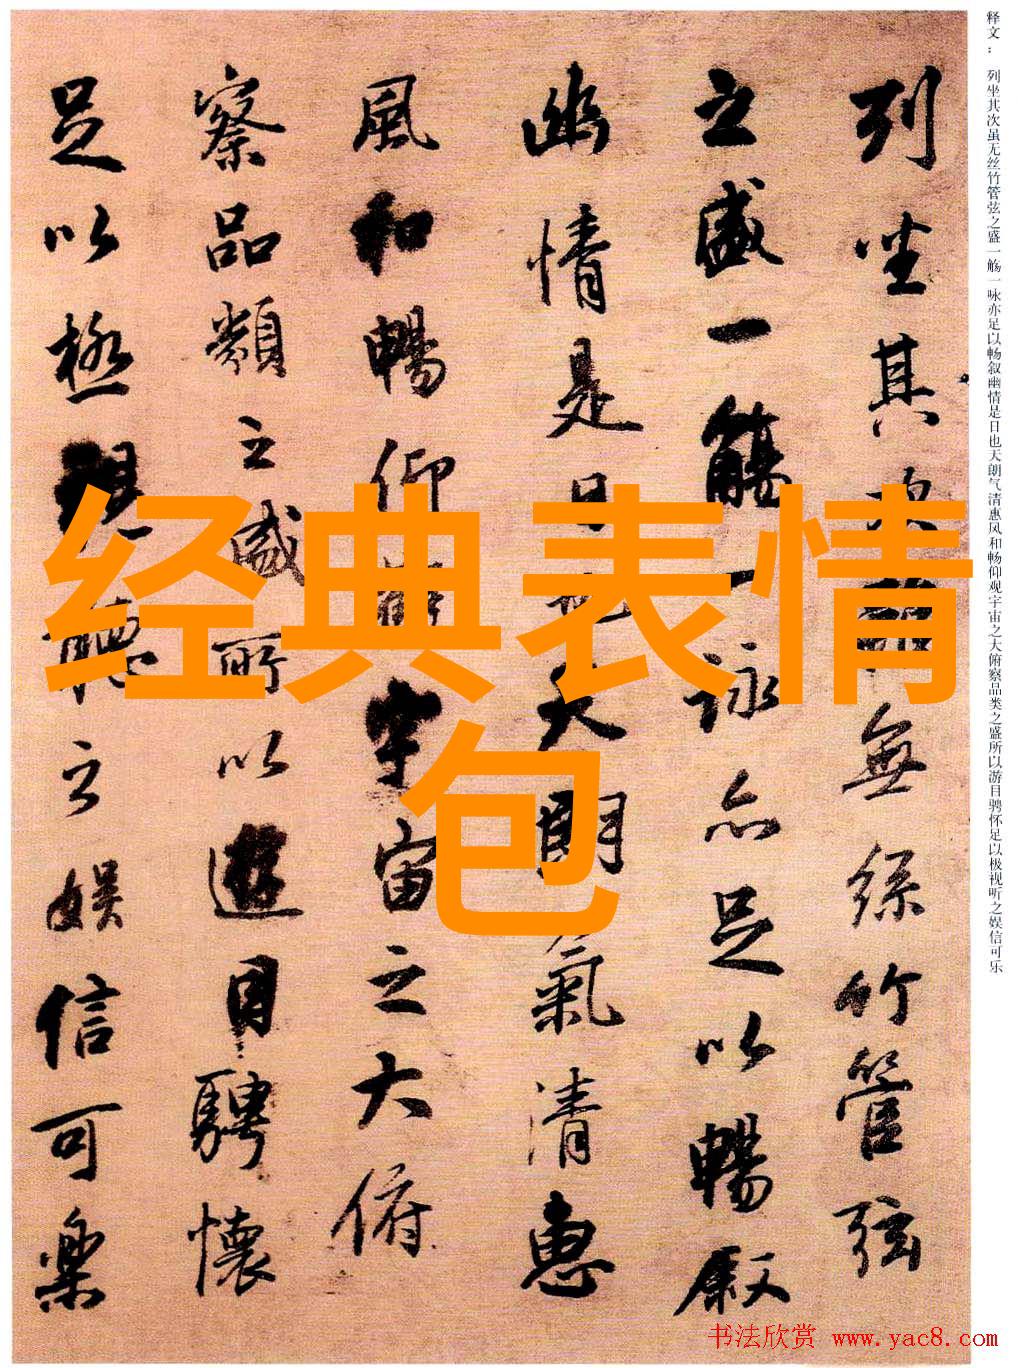 释文： 列坐其次虽无丝竹管弦之盛一觞一咏亦足以畅叙幽情是日也天朗气清惠风和畅仰观宇宙之大俯察品类之盛所以游目骋怀足以极视听之娱信可乐
列坐其次雖無絲竹管弦
之盛一觴一詠亦足以暢叙
幽情是日也天朗氣清惠
風和暢仰觀宇宙之大俯
察品類之盛所以遊目騁懷
足以極視聽之娱信可樂
经典表情
包
书法欣赏 www.yac8.com